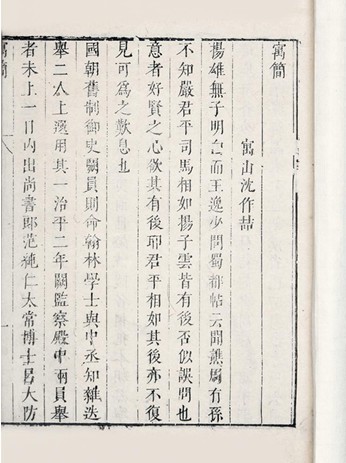 寓簡
寓山沈作喆
揚雄無子明白而王逸少問蜀都帖云聞譙周有孫
不知嚴君平司馬相如揚子雲皆有後否似誤問也
意者好賢之心欲其有後耶君平相如其後亦不復
見可為之歎息也
國朝舊制御史闕員則命翰林學士與中丞知雜迭
舉二人上遂用其一治平二年闕監察殿中兩員舉
者未上一日內出尚書郎范純仁太常博士呂大防
寓簡